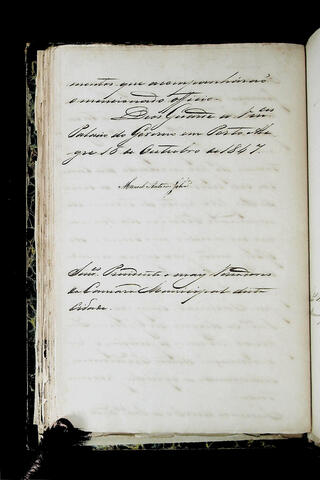 mentos que acompanharão
o mencionado officio.
Deos Guarde a Vm.ces
Palacio do Governo em Porto Ale-
gre 18 de Outubro de 1847.
Manoel Antonio
Snr.es Presidente e mais Vereadores
da Camara Municipal desta
Cidade.